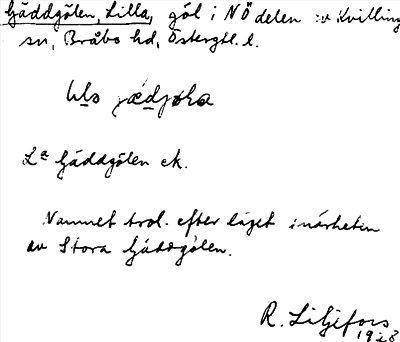 Gäddgölen, Lilla, göl i NÖ delen av Kvilling
sn, Bråbo hd, Östergtl. l.
La Gäddgölen ek.
Namnet trol. efter läget i närheten
av Stora Gäddgölen.
R. Liljefors